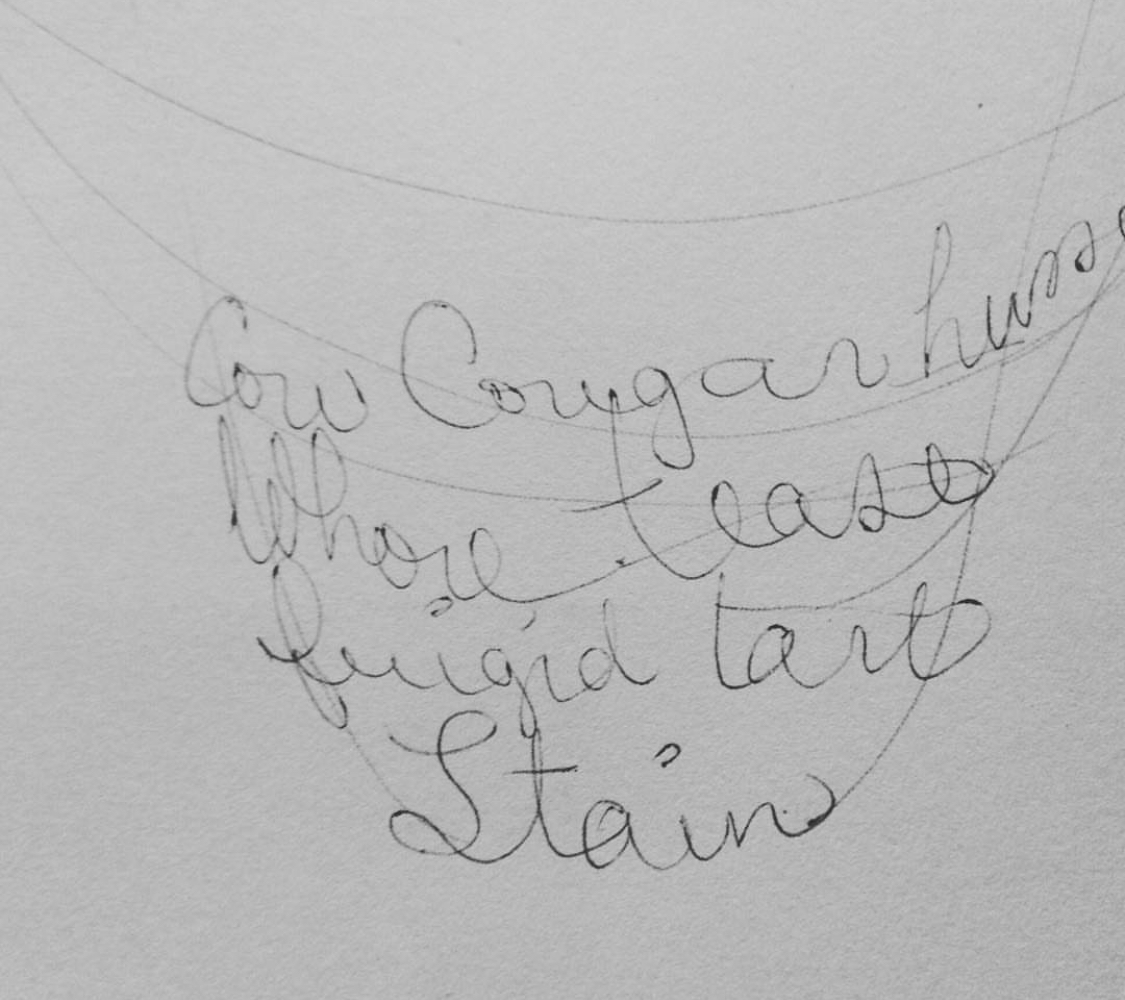 Cow Cougar
Whore tease
frigid tart
Stain